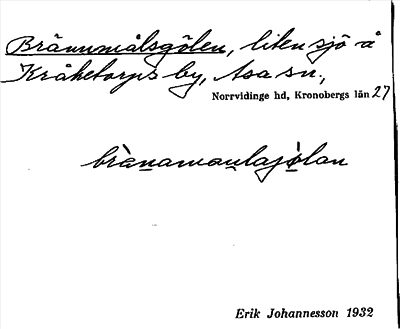 Brännmålsgölen, liten sjö å
Kråketorps by, Asa sn.,
Norrvidinge hd, Kronobergs län 27
brànamaulajölan
Erik Johannesson 1932